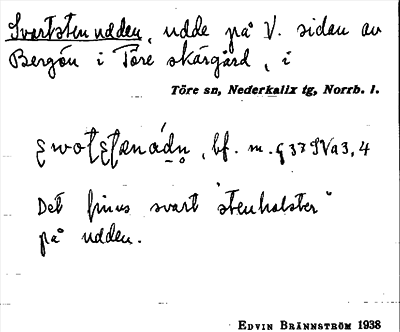 Svartstenudden, udde på V. sidan av
Bergön i Töre skärgård, i
Töre sn, Nederkalix tg, Norrb. l.
bf. m. g 33 IVa3,4
Det finns svart "stenholster"
på udden.
EDVIN BRÄNNSTRÖM 1938